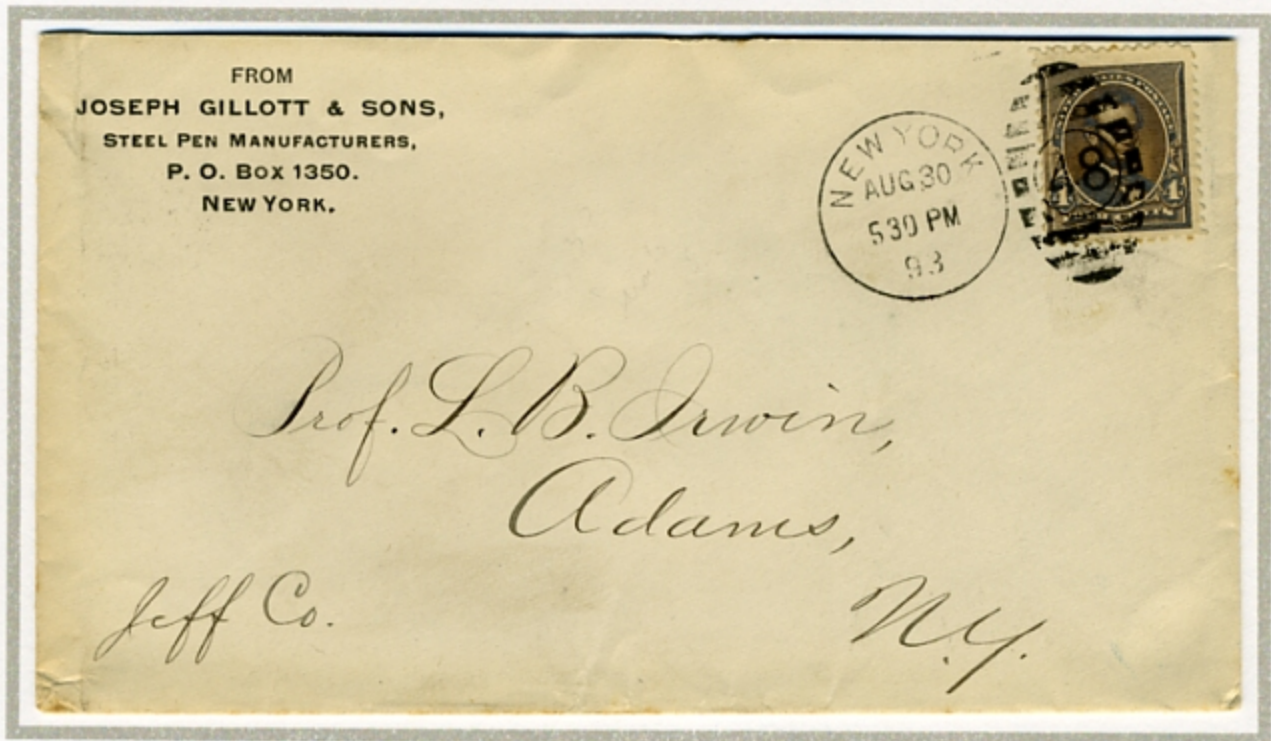 FROM
JOSEPH GILLOTT & SONS,
STEEL PEN MANUFACTURERS,
P. O. BOX 1350.
NEW YORK.
NEW YORK
AUG 30
5 30 PM
93
8
4 4
Prof. L. B. Irwin,
Adams,
Jeff Co.
N.Y.